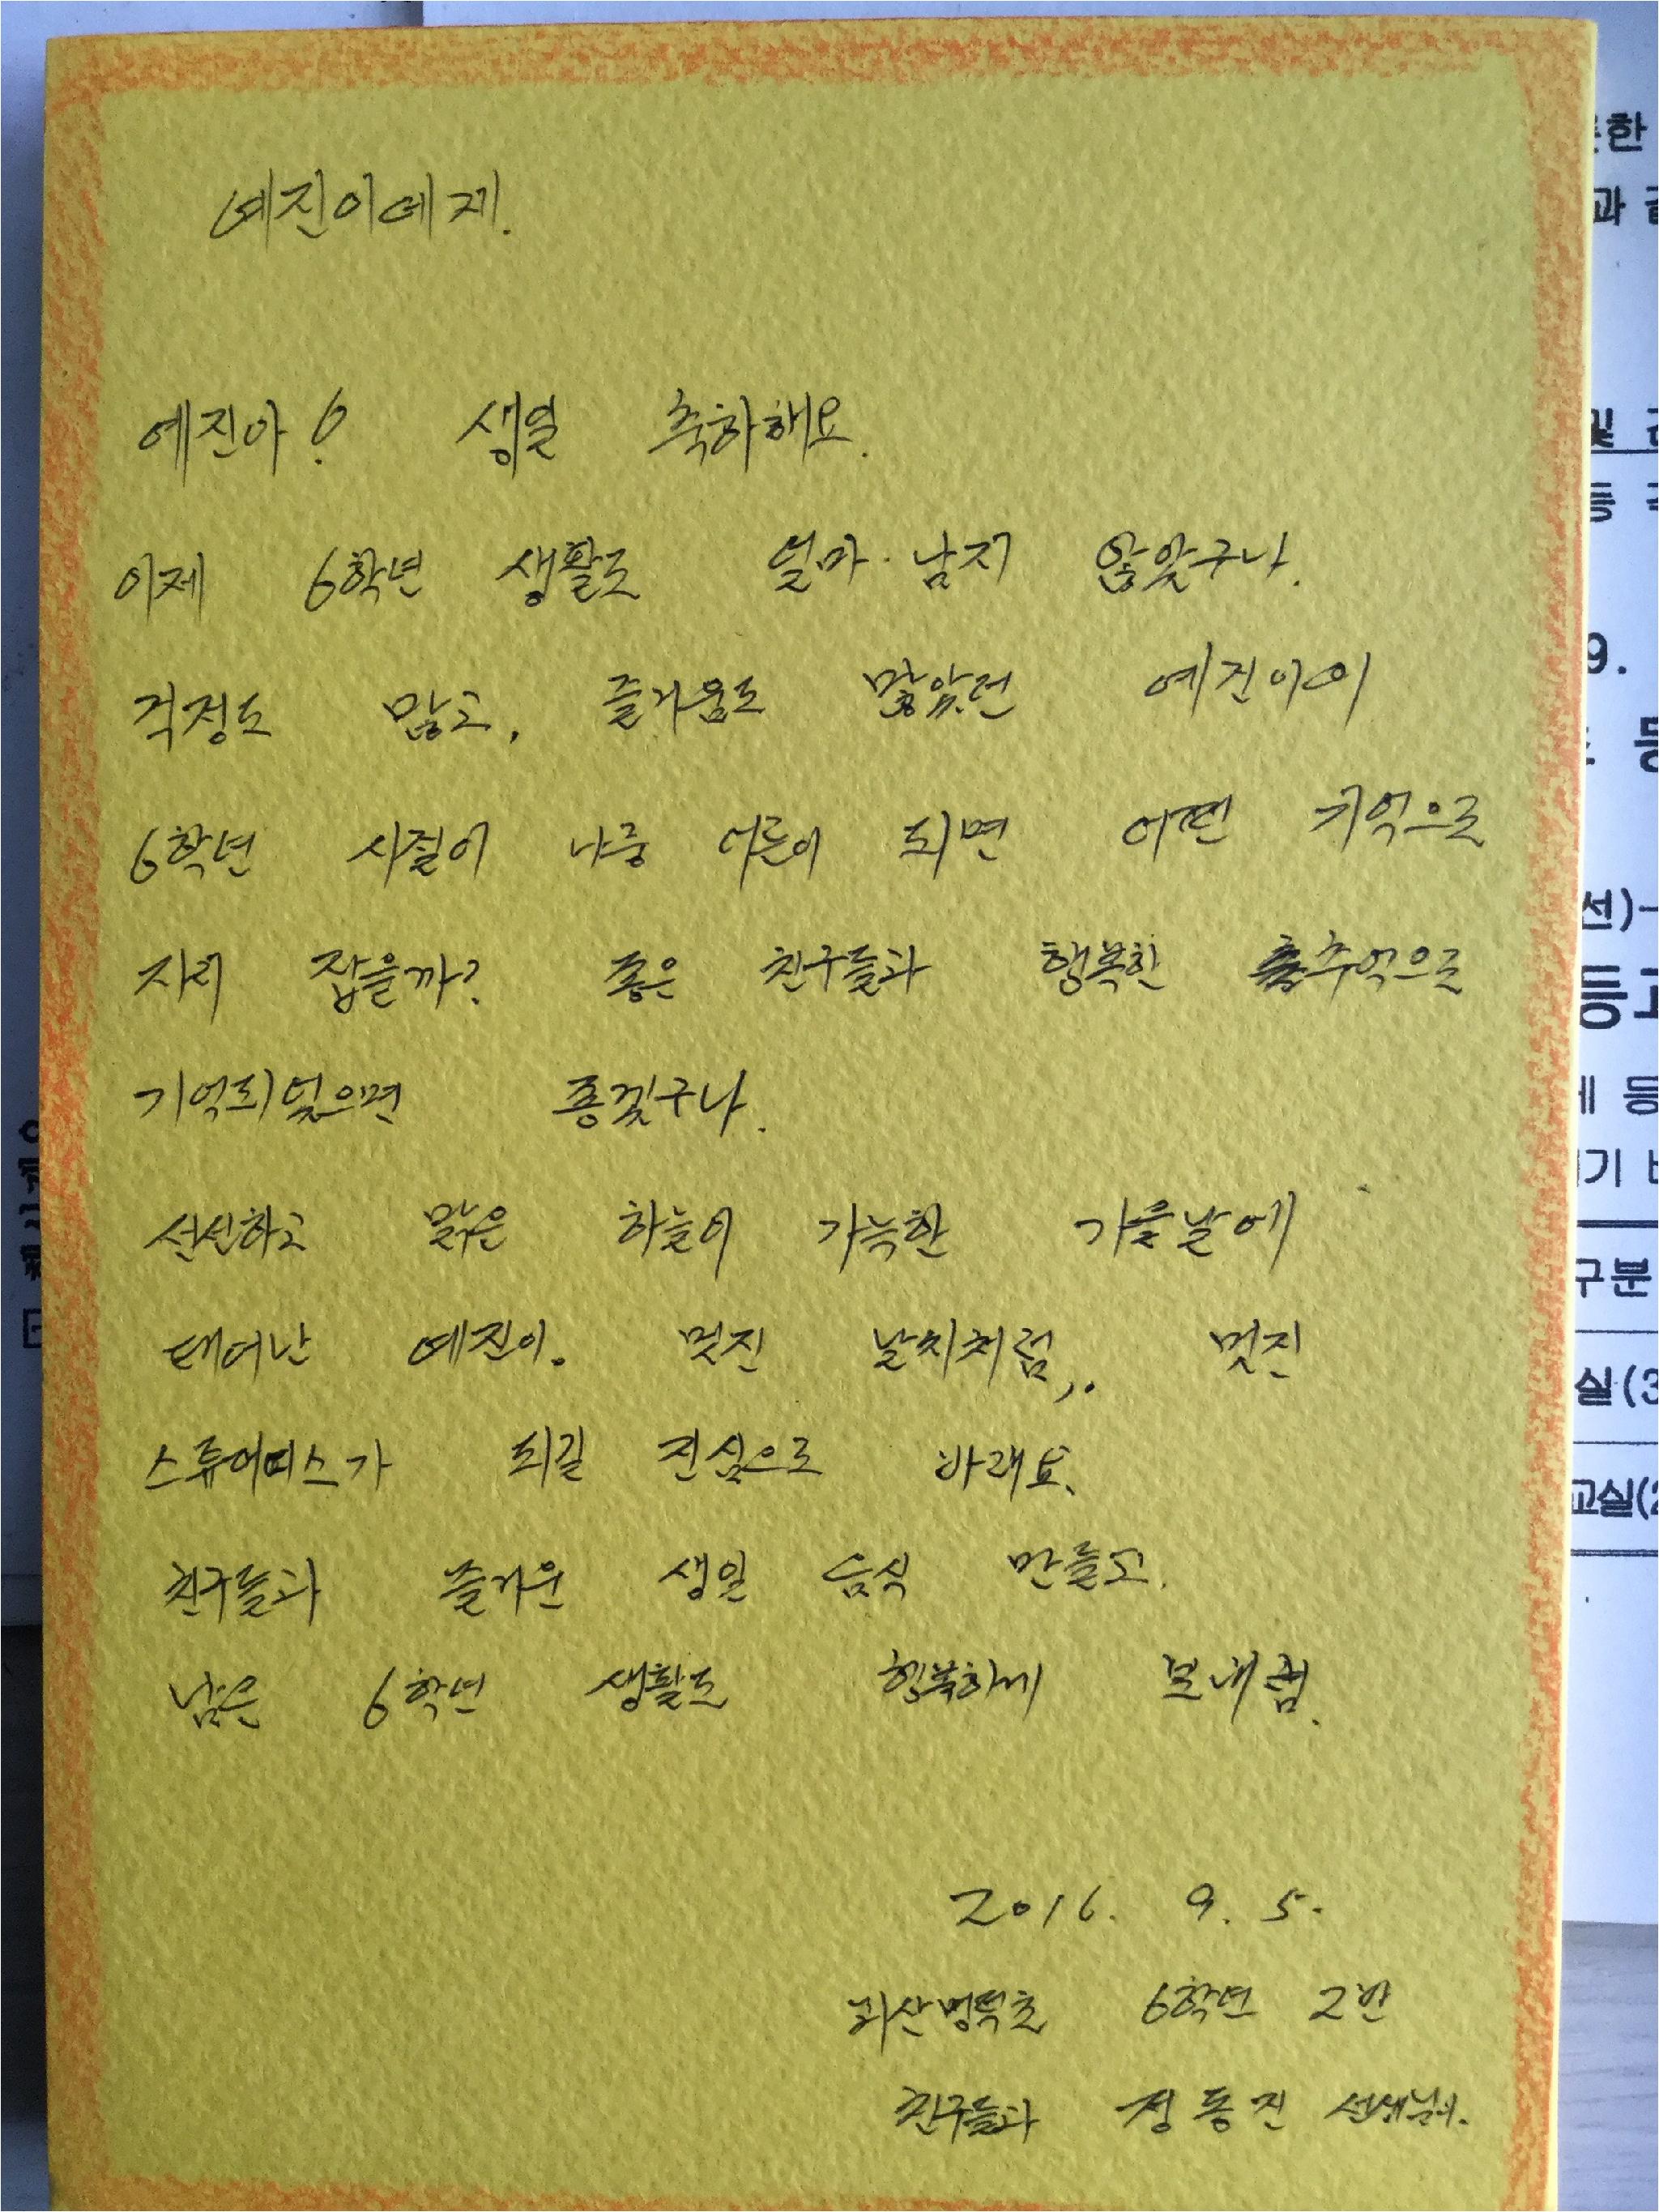 예진이에게.
예진아! 생일 축하해요.
이제 6학년 생활도 얼마 남지 않았구나.
걱정도 많고, 즐거움도 많았던 예진이의
6학년 시절이 나중 어른이 되면 어떤 기억으로
자리 잡을까? 좋은 친구들과 행복한 추억으로
기억되었으면 좋겠구나.
선선하고 맑은 하늘이 가득한 가을날에
태어난 예진이. 멋진 날씨처럼, 멋진
스튜어디스가 되길 진심으로 바래요.
친구들과 즐거운 생일 음식 만들고,
남은 6학년 생활도 행복하게 보내렴.
2016. 9. 5.
괴산명덕초 6학년 2반
친구들과 정동진 선생님이.
과
등
9.
등
선)
등고
네 등
구분
실(3
교실(2